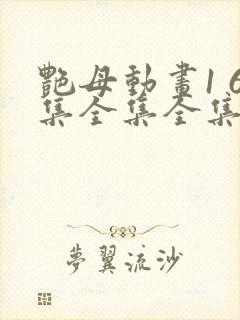 艷母動畫16
集全集全集
夢翼流沙